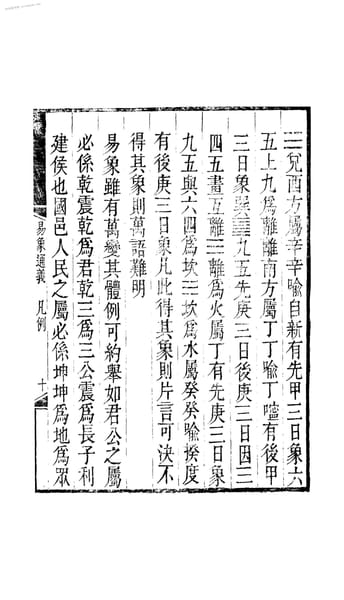 ☱兌西方屬辛辛喻自新有先甲三日象六
五上九爲離離南方屬丁丁喻丁嚀有後甲
三日象巽䷸九五先庚三日後庚三日因三
四五畫互離☲爲火屬丁有先庚三日象
九五與六四爲坎☵坎爲水屬癸癸喻揆度
有後庚三日象凡此得其象則片言可決不
得其象則萬語難明
易象雖有萬變其體例可約舉如君公之屬
必係乾震乾爲君乾三爲三公震爲長子利
建侯也國邑人民之屬必係坤坤爲地爲眾
易象通義 凡例 十